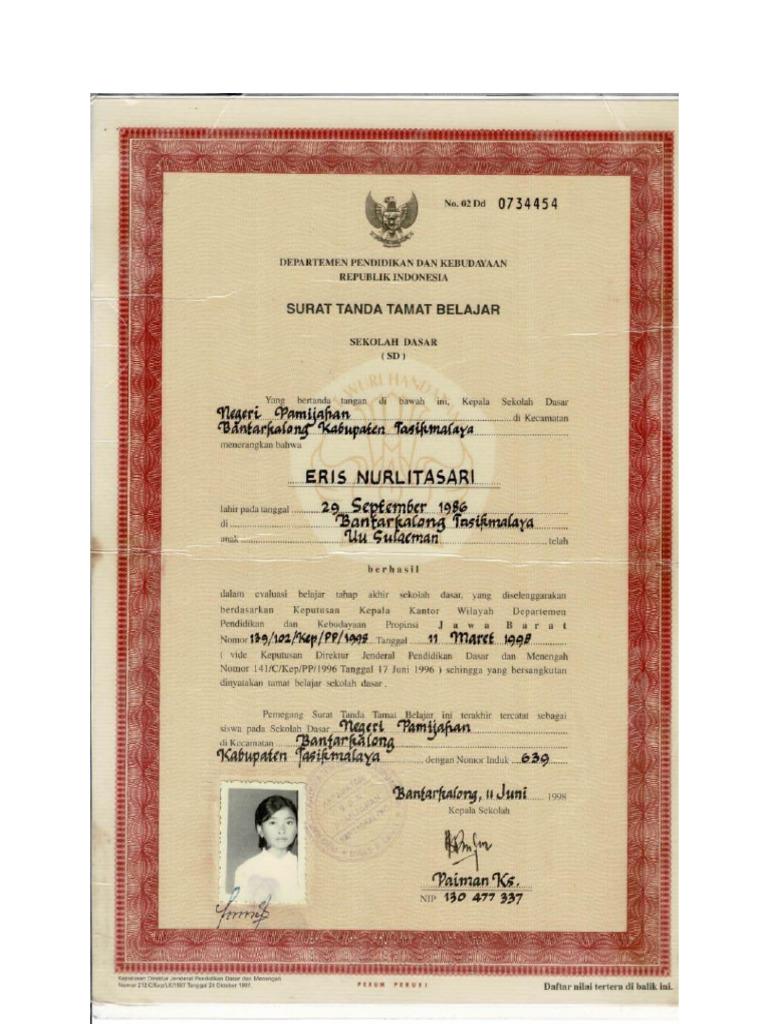 No. 02 Dd 0734454
DEPARTEMEN PENDIDIKAN DAN KEBUDAYAAN
REPUBLIK INDONESIA
SURAT TANDA TAMAT BELAJAR
SEKOLAH DASAR
( SD )
Yang bertanda tangan di bawah ini, Kepala Sekolah Dasar
Negeri Pamijahan di Kecamatan
Bantarkalong Kabupaten Tasikmalaya
menerangkan bahwa
ERIS NURLITASARI
lahir pada tanggal 29 September 1986
di Bantarkalong Tasikmalaya
anak Uu Sulaeman telah
berhasil
dalam evaluasi belajar tahap akhir sekolah dasar, yang diselenggarakan
berdasarkan Keputusan Kepala Kantor Wilayah Departemen
Pendidikan dan Kebudayaan Propinsi Jawa Barat
Nomor 139/102/Kep/PP/1998 Tanggal 11 Maret 1998
( vide Keputusan Direktur Jenderal Pendidikan Dasar dan Menengah
Nomor 141/C/Kep/PP/1996 Tanggal 17 Juni 1996 ) sehingga yang bersangkutan
dinyatakan tamat belajar sekolah dasar.
Pemegang Surat Tanda Tamat Belajar ini terakhir tercatat sebagai
siswa pada Sekolah Dasar Negeri Pamijahan
di Kecamatan Bantarkalong
Kabupaten Tasikmalaya dengan Nomor Induk 639
Bantarkalong, 11 Juni 1998
Kepala Sekolah
Paiman Ks.
NIP 130 477 337
Keputusan Direktur Jenderal Pendidikan Dasar dan Menengah
Tanggal 24 Oktober 1997.
PERUM PERURI
Daftar nilai tertera di balik ini.